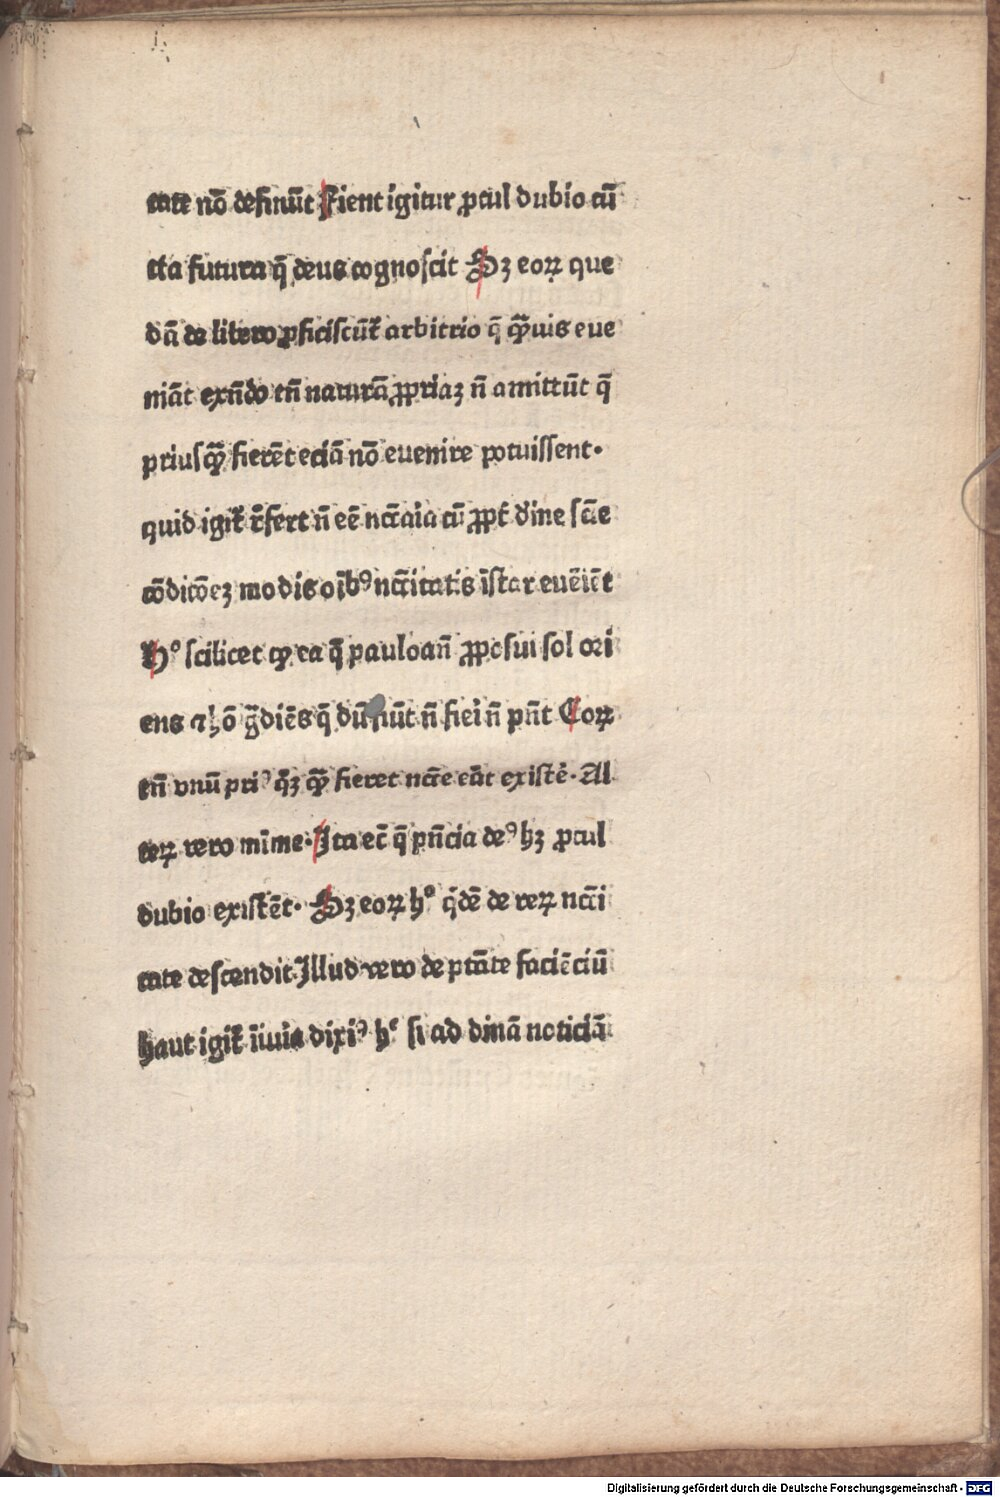 tate nō definūt Fient igitur ꝓcul dubio cū
cta futura q̄ deus cognoscit Sꝫ eoꝝ que
dā de libero ꝓficiscūt̄ arbitrio q̄ qͣuis eue
niāt exn̄do tn̄ naturā ꝓpriaꝫ n̄ amittūt q̄
priusqͣꝫ fierēt eciā nō euenire potuissent·
quid igit̄ r̄fert n̄ eē nccāia cū ꝓpt̄ diīne scīe
cōdicōeꝫ modis oībꝰ nccītatis īstar euēiēt
Hͦ scilicet ꝙ ea q̄ pauloan̄ ꝓposui sol ori
ens ⁊ hō gͣdiēs q̄ dū fiūt n̄ fieri n̄ pn̄t Eoꝝ
tn̄ vnū priꝰ qͣꝫ qͣꝫ fieret ncc̄e eāt existē· Al
teꝝ vero mīme· Ita ec̄ q̄ pn̄cia deꝰ hꝫ ꝓcul
dubio existēt· Sꝫ eoꝝ hͦ qͥdē de reꝝ ncc̄i
tate descendit Illud vero de ptāte faciēciū
haut igit̄ īiuia dixiꝰ hͨ si ad diuinā noticiā
Digitalisierung gefördert durch die Deutsche Forschungsgemeinschaft - DFG